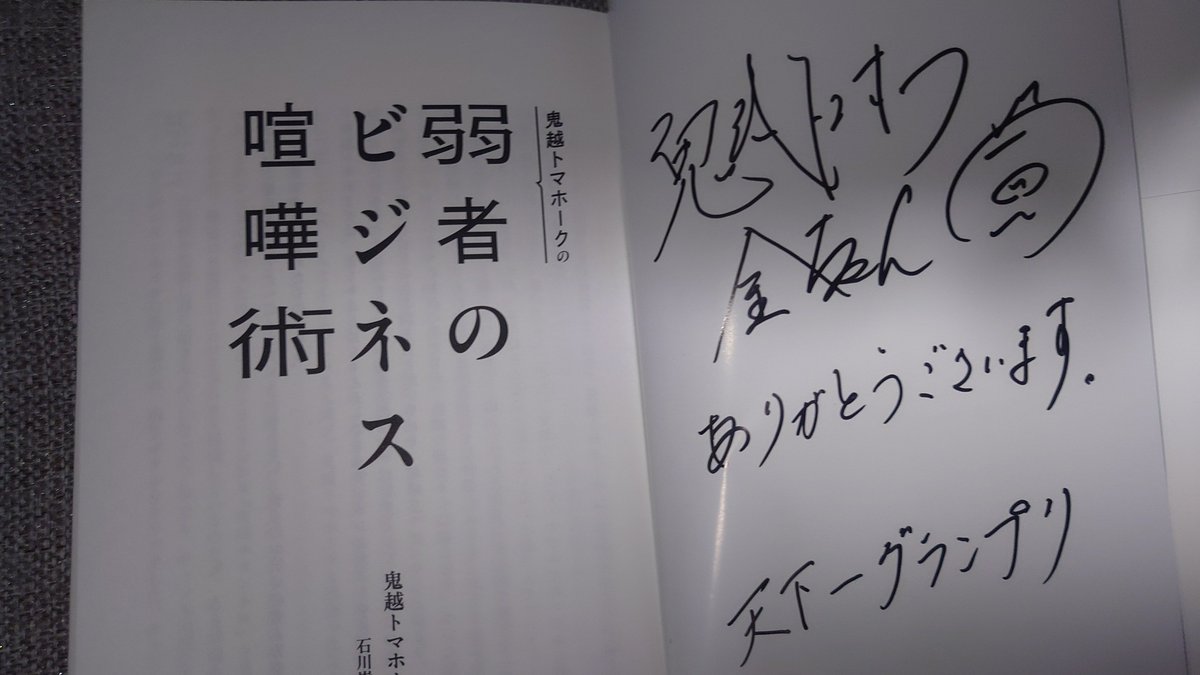 鬼越トマホークの
弱者の
ビジネス
喧嘩術
鬼越トマホ
石川
金ちゃん
ありがとうございます。
天下一グランプリ